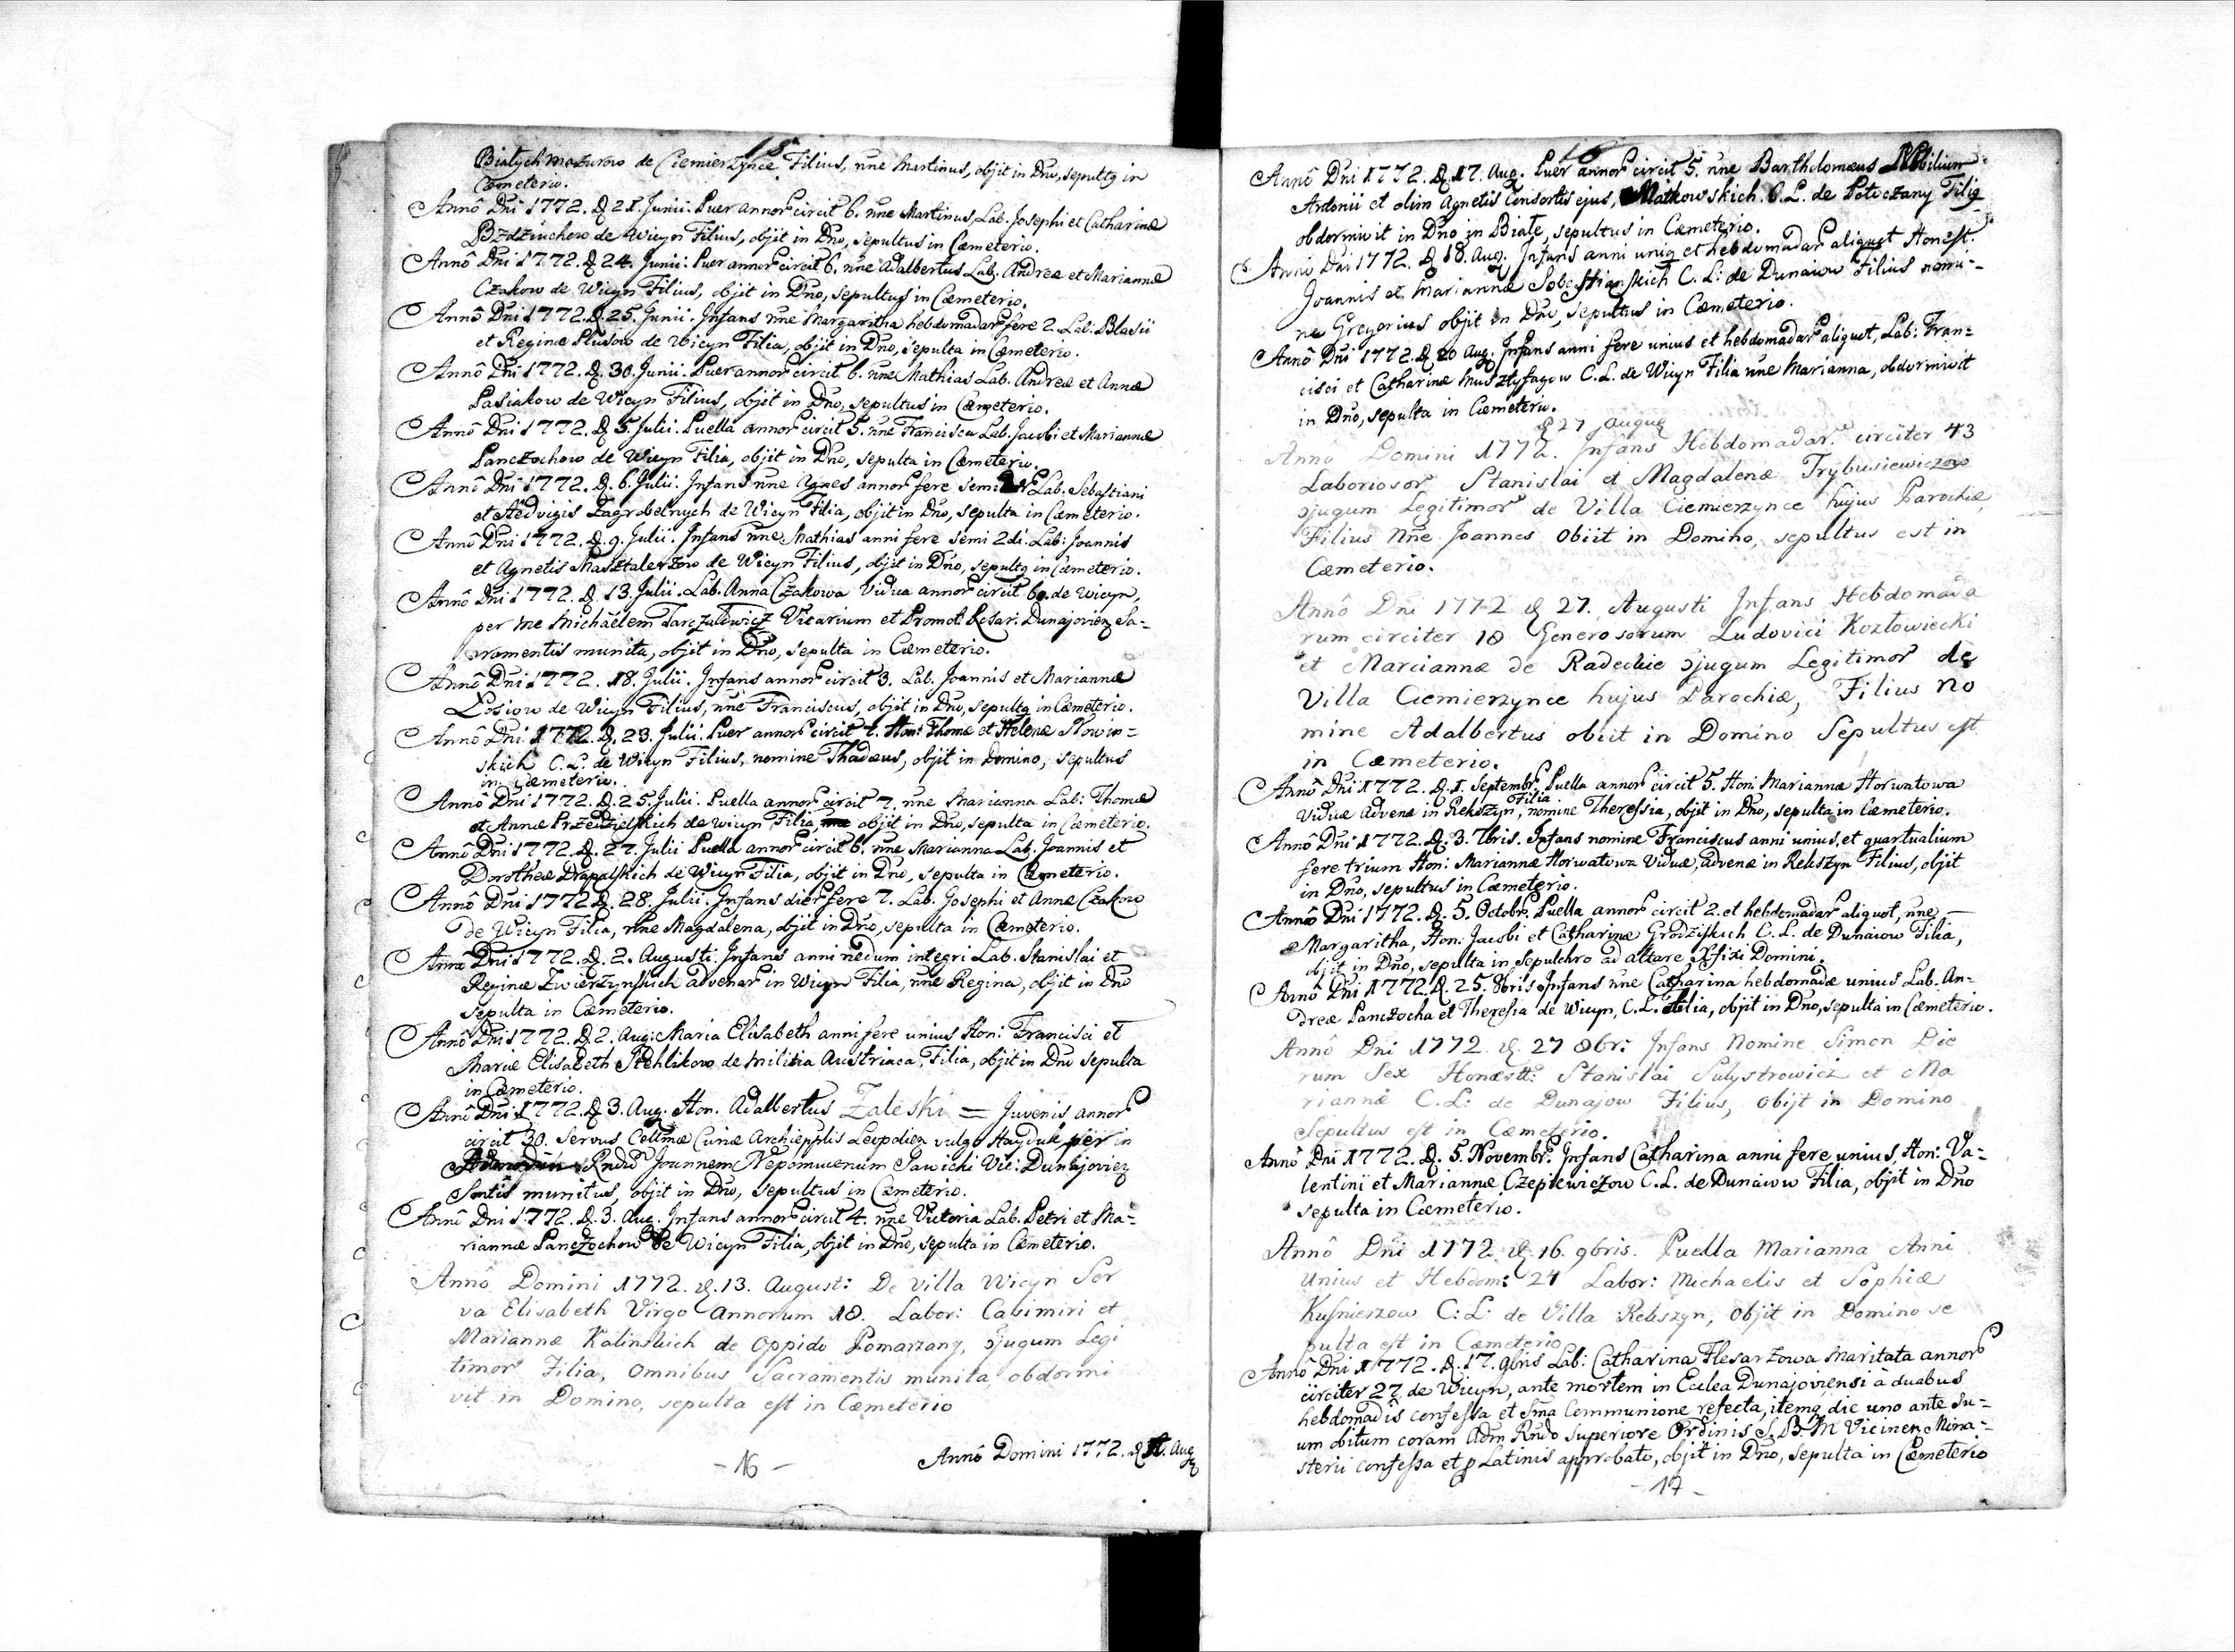 15
Biatych mazurow de Ciemierzynce Filius, nne Martinus, objit in Dno, sepultq in
Cœmeterio.
Annô Dni 1772. d. 21. Junii. Puer annor circit 6. nne Martinus Lab. Josephi et Catharinæ
Bzdziuchow de Wicyn Filius, objit in Dno, sepultus in Cœmeterio.
Annô Dni 1772. d. 24. Junii. Puer annor circit 6. nne Adalbertus Lab. Andreæ et Mariannæ
Czakow de Wicyn Filius, objit in Dno, sepultus in Cœmeterio.
Annô Dni 1772. d. 25. Junii. Jnfans nne Margaritha hebdomadar fere 2. Lab: Blasii
et Reginæ Plusow de Wicyn Filia, objit in Dno, sepulta in Cœmeterio.
Annô Dni 1772. d. 30. Junii. Puer annor circit 6. nne Mathias Lab. Andreæ et Annæ
Pasiakow de Wicyn Filius, objit in Dno, sepultus in Cœmeterio.
Annô Dni 1772. d. 5. Julii. Puella annor circit 5. nne Francisca Lab. Jacobi et Mariannæ
Panczochow de Wicyn Filia, objit in Dno, sepulta in Cœmeterio.
Annô Dni 1772. d. 6. Julii. Jnfans nne Agnes annor fere semi Lab. Sebastiani
et Hedvigis Zagrobelnych de Wicyn Filia, objit in Dno, sepulta in Cœmeterio.
Annô Dni 1772. d. 9. Julii. Jnfans nne Mathias anni fere semi 2di Lab: Joannis
et Agnetis Masztalerzow de Wicyn Filius, objit in Dno, sepultq in Cœmeterio.
Annô Dni 1772. d. 13. Julii. Lab. Anna Czakowa Vidua annor circit 60. de Wicyn,
per me Michaëlem Tarczalewicz Vicarium et Promot. Rosar. Dunajovien Sa-
cramentis munita, objit in Dno, sepulta in Cœmeterio.
Annô Dni 1772. 18. Julii. Jnfans annor circit 3. Lab. Joannis et Mariannæ
Łosiow de Wicyn Filius, nne Franciscus, objit in Dno, sepultq in Cœmeterio.
Annô Dni 1772. d. 23. Julii. Puer annor circit 7. Hon: Thomæ et Helenæ Nowin=
skich C. L. de Wicyn Filius, nomine Thadæus, objit in Domino, sepultus
in Cœmeterio.
Annô Dni 1772. d. 25. Julii. Puella annor circit 7. nne Marianna Lab: Thomæ
et Annæ Przedzielskich de Wicyn Filia, objit in Dno, sepulta in Cœmeterio.
Annô Dni 1772. d. 27. Julii Puella annor circit 6. nne Marianna Lab. Joannis et
Dorotheæ Drapalskich de Wicyn Filia, objit in Dno, sepulta in Cœmeterio.
Annô Dni 1772 d. 28. Julii. Jnfans dier fere 7. Lab. Josephi et Annæ Czakow
de Wicyn Filia, nne Magdalena, objit in Dno, sepulta in Cœmeterio.
Anno Dni 1772. d. 2. Augusti. Jnfans anni nedum integri Lab. Stanislai et
Reginæ Zwierzynskich advenar in Wicyn Filia, nne Regina, objit in Dno
sepulta in Cœmeterio.
Annô Dni 1772. d. 2. Aug: Maria Elisabeth anni fere unius Hon: Francisci et
Mariæ Elisabeth Stehlikow de militia Austriaca, Filia, objit in Dno sepulta
in Cœmeterio.
Annô Dni 1772. d. 3. Aug. Hon. Adalbertus Zaleski = Juvenis annor
circit 30. Servus Celsmæ Curiæ Archieppi­lis Leopolien vulgo Hayduk per
Rndu Joannem Nepomucenum Sawicki Vic: Dunajovien
Sentis munitus, objit in Dno, sepultus in Cœmeterio.
Annô Dni 1772. d. 3. Aug. Jnfans annor circit 4. nne Victoria Lab. Petri et Ma=
riannæ Panczochow de Wicyn Filia, objit in Dno, sepulta in Cœmeterio.
Annô Domini 1772. d. 13. August: De villa Wicyn Ser
va Elisabeth Virgo Annorum 18. Labor: Casimiri et
Mariannæ Kalinskich de Oppido Pomarzany, ɔjugum Legi
timor Filia, Omnibus Sacramentis munita, obdormi
vit in Domino, sepulta est in Cœmeterio
Annô Domini 1772. d. Aug
- 16 -
16
Annô Dni 1772. d. 17. Aug. Puer annor circit 5. nne Bartholomæus Nobilium
Antonii et olim Agnetis Consortis ejus, Małkowskich C. L. de Potoczany Filiq
obdormivit in Dno in Biale, sepultus in Cœmeterio.
Anno Dni 1772. d. 18. Aug. Jnfans anni uniq et hebdomadar aliquot Honest.
Joannis et Mariannæ Sobestianskich C. L: de Dunaiow Filius nomi=
ne Gregorius objit in Dno, sepultus in Cœmeterio.
Annô Dni 1772. d. 20 Aug. Jnfans anni fere unius et hebdomadar aliquot, Lab: Fran=
cisci et Catharinæ Musztyfagow C. L. de Wicyn Filia nne Marianna, obdormivit
in Dno, sepulta in Cœmeterio.
d 27 Augus
Anno Domini 1772. Jnfans Hebdomadar circiter 43
Laboriosor Stanislai et Magdalenæ Trybusiewiczow
ɔjugum Legitimor de Villa Ciemierzynce hujus Parochiæ,
Filius Nne Joannes Obiit in Domino, sepultus est in
Cœmeterio.
Annô Dni 1772 d. 27. Augusti Jnfans Hebdomada
rum circiter 18 Generosorum Ludovici Kozłowiecki
et Marciannæ de Radeckie ɔjugum Legitimor de
Villa Ciemierzynce hujus Parochiæ, Filius no
mine Adalbertus obiit in Domino Sepultus est
in Cœmeterio.
Annô Dni 1772. d. 1. Septembr. Puella annor circit 5. Hon: Mariannæ Horwatowa
Viduæ Advenæ in Rekszyn, Filia nomine Theressia, objit in Dno, sepulta in Cœmeterio.
Annô Dni 1772. d. 3. 7bris. Jnfans nomine Franciscus anni unius, et quartualium
fere trium Hon: Mariannæ Horwatowa Viduæ, advenæ in Rekszyn Filius, objit
in Dno, sepultus in Cœmeterio.
Annô Dni 1772. d. 5. Octobr. Puella annor circit 2. et hebdomadar aliquot, nne
Margaritha, Hon: Jacobi et Catharinæ Grodziskich C. L. de Dunaiow Filia,
objit in Dno, sepulta in sepulchro ad altare Xfixi Domini.
Annô Dni 1772. d. 25. 8bris Jnfans nne Catharina hebdomadæ unius Lab. An-
dreæ Panczocha et Theresia de Wicyn, C. L. Filia, objit in Dno, sepulta in Cœmeterio.
Annô Dni 1772. d. 27 8br: Jnfans Nomine Simon Die
rum Sex Honestt: Stanislai Sulystrowicz et Ma
riannæ C. L: de Dunajow Filius, Obijt in Domino
Sepultus est in Cœmeterio.
Annô Dni 1772. d. 5. Novembr. Jnfans Catharina anni fere unius, Hon: Va=
lentini et Mariannæ Czepiewiczow C. L. de Dunaiow Filia, objit in Dno
sepulta in Cœmeterio.
Annô Dni 1772 d. 16. 9bris. Puella Marianna Anni
Unius et Hebdom: 24 Labor: Michaelis et Sophiæ
Kusnierzow C: L: de Villa Rekszyn, Objit in Domino se
pulta est in Cœmeterio
Annô Dni 1772. d. 17. 9bris Lab: Catharina Flesarzowa Maritata annor
circiter 27 de Wicyn, ante mortem in Ecclea Dunajoviensi à duabus
hebdomadis confessa et Sma Communione refecta, itemq die uno ante su=
um obitum coram Adm Rndo Superiore Ordinis S. B. M Vicinen Mona=
sterii confessa et p Latinis approbato, objit in Dno, sepulta in Cœmeterio
- 17 -